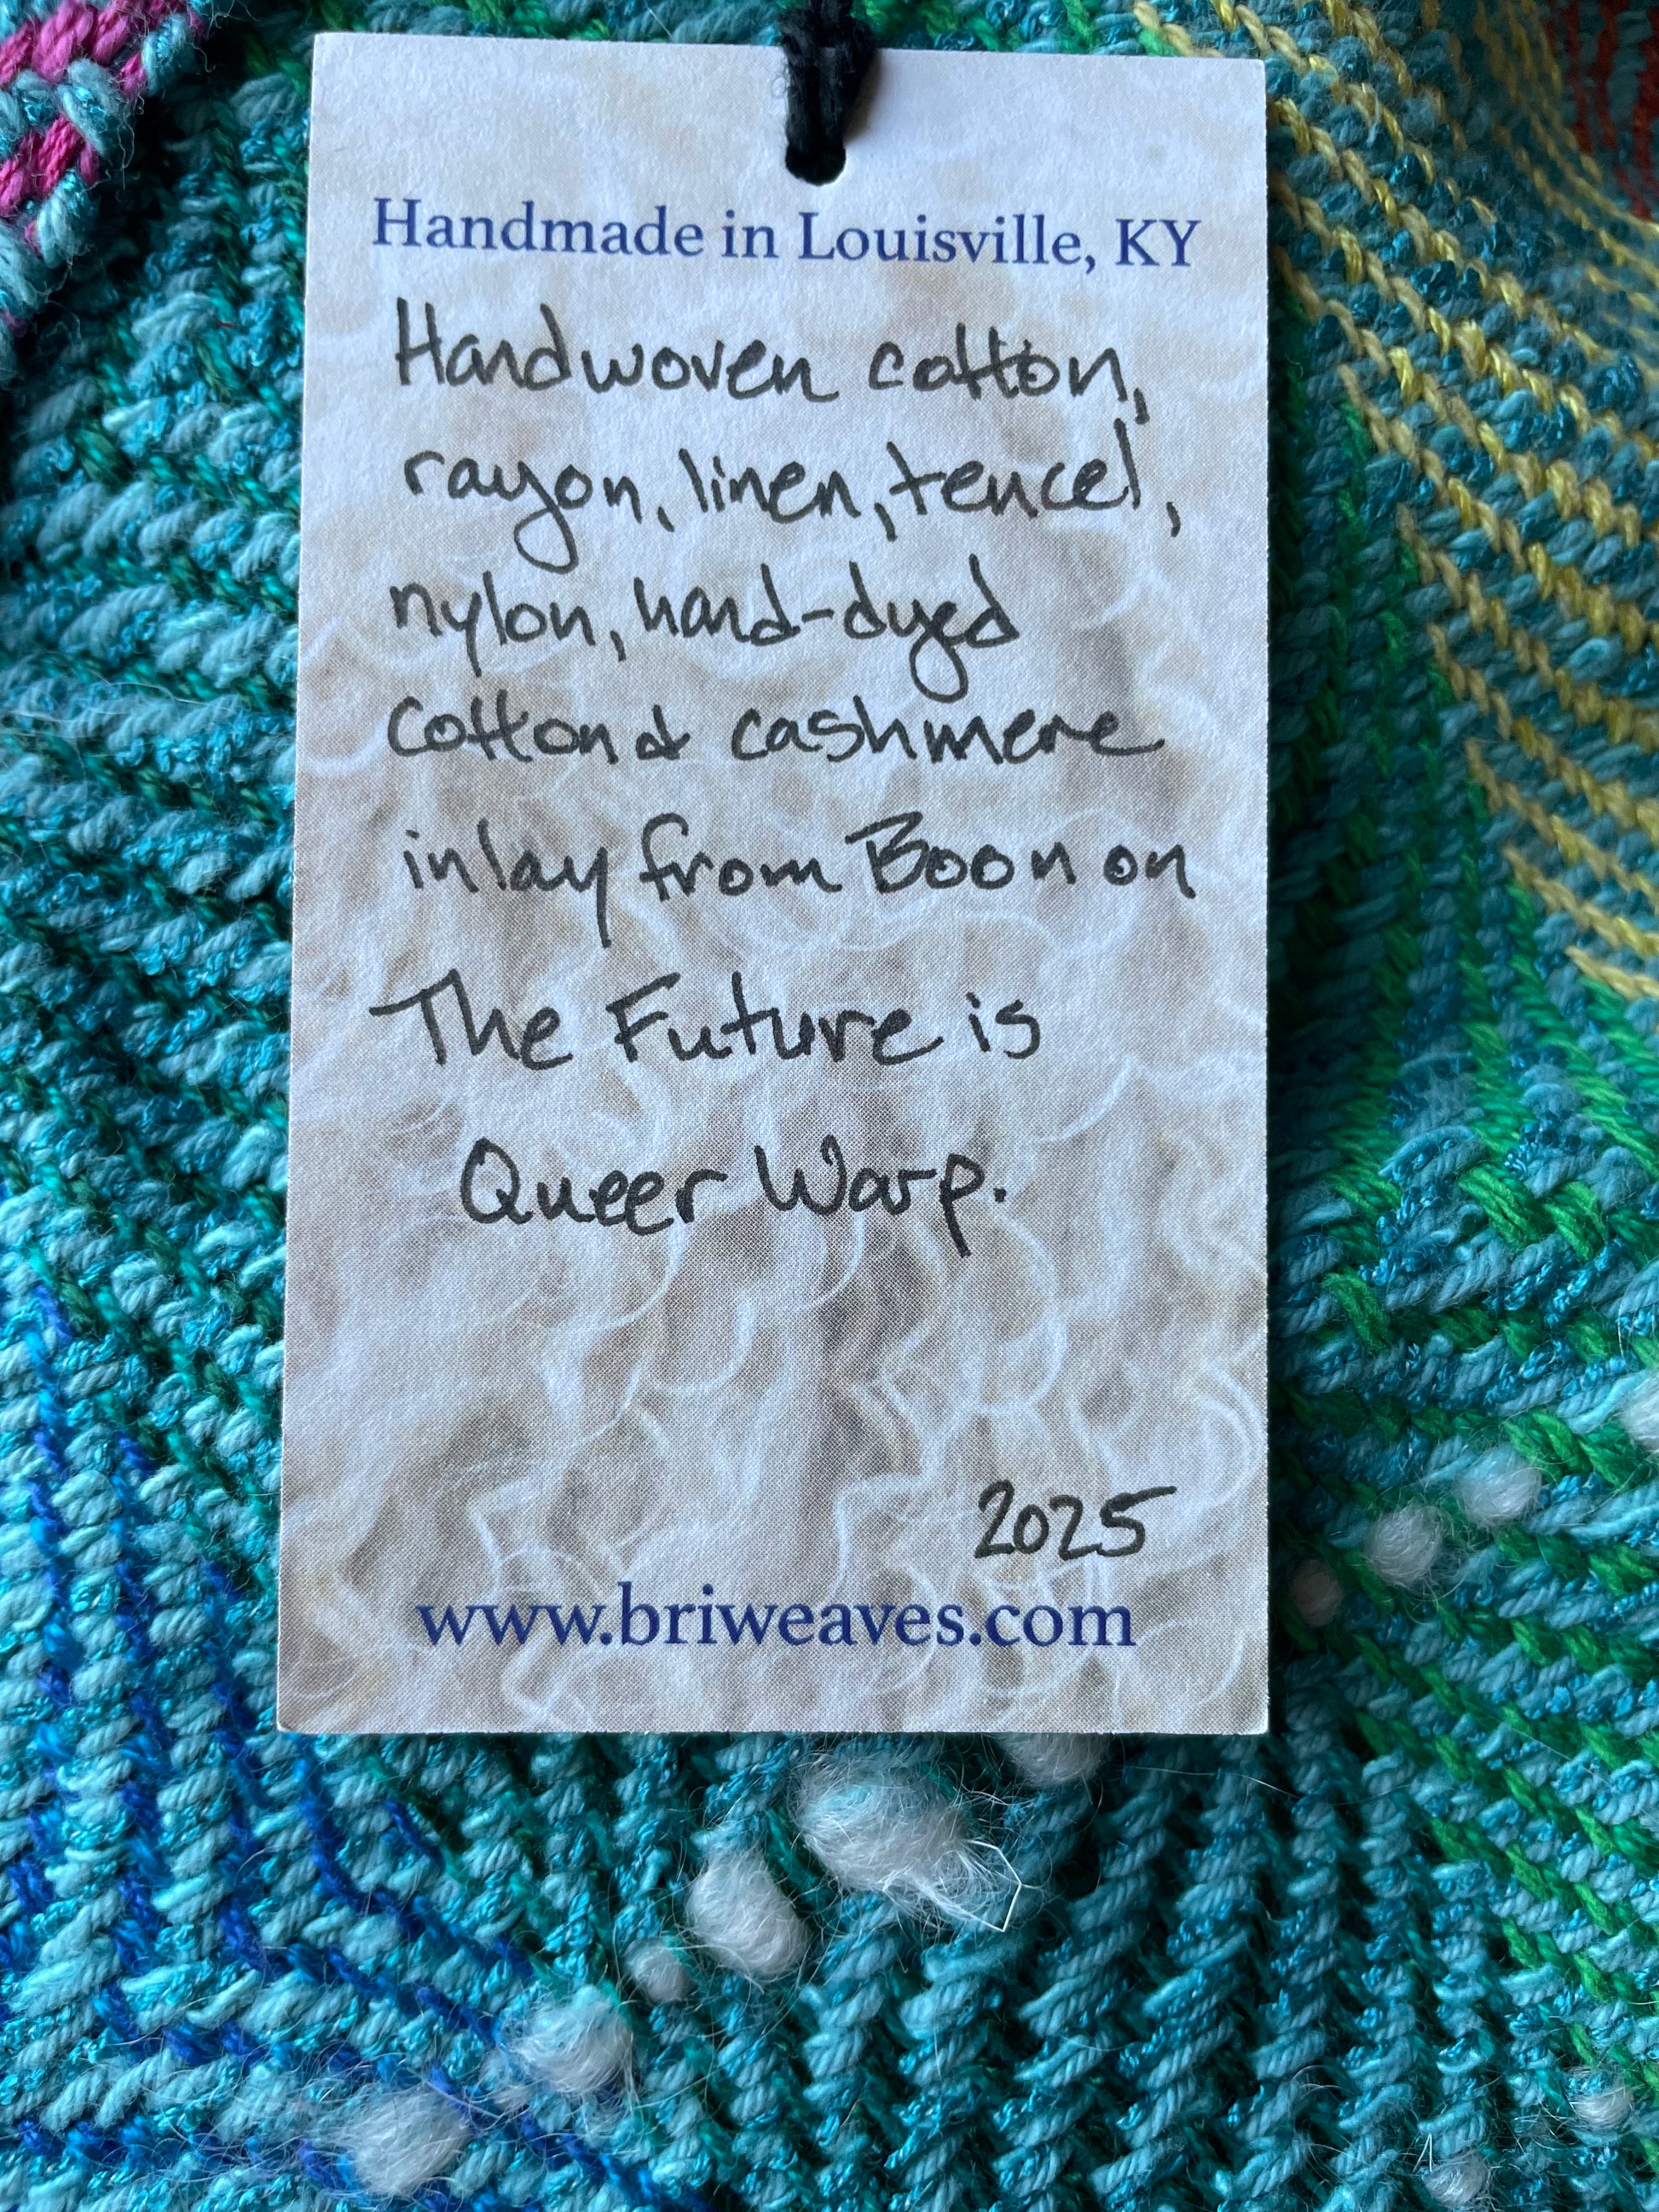 Handmade in Louisville, KY
Handwoven cotton,
rayon, linen, tencel,
nylon, hand-dyed
cotton & cashmere
inlay from Boon on
The Future is
Queer Warp.
2025
www.briweaves.com